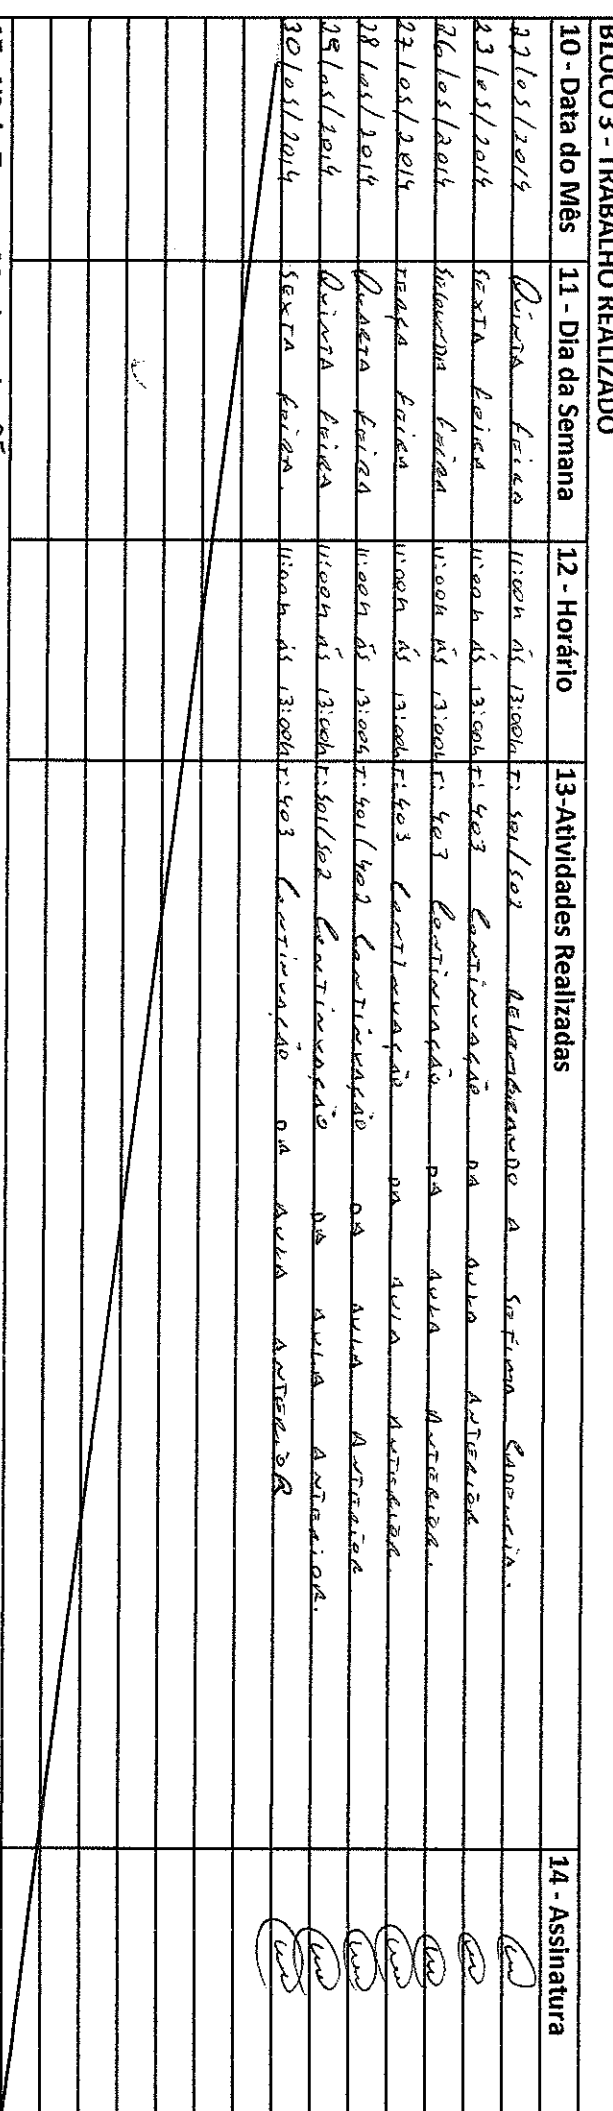 BLOCO 3 - TRABALHO REALIZADO
10 - Data do Mês 11 - Dia da Semana 12 - Horário 13-Atividades Realizadas 14 - Assinatura
22/05/2014 QUINTA FEIRA 11:00h ÀS 13:00h T: 501/502 RELEMBRANDO A SÉTIMA CADENCIA.
23/05/2014 SEXTA FEIRA 11:00h ÀS 13:00h T: 403 CONTINUAÇÃO DA AULA ANTERIOR
26/05/2014 SEGUNDA FEIRA 11:00h ÀS 13:00h T: 403 CONTINUAÇÃO DA AULA ANTERIOR.
27/05/2014 TERÇA FEIRA 11:00h ÀS 13:00h T: 403 CONTINUAÇÃO DA AULA ANTERIOR.
28/05/2014 QUARTA FEIRA 11:00h ÀS 13:00h T: 401/402 CONTINUAÇÃO DA AULA ANTERIOR
29/05/2014 QUINTA FEIRA 11:00h ÀS 13:00h T: 501/502 CONTINUAÇÃO DA AULA ANTERIOR.
30/05/2014 SEXTA FEIRA. 11:00h ÀS 13:00h T: 403 CONTINUAÇÃO DA AULA ANTERIOR